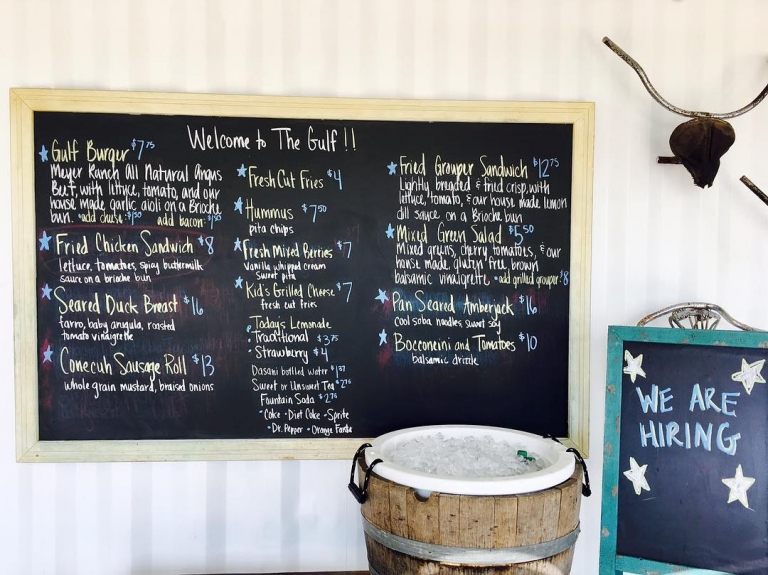 Welcome to The Gulf!!
Gulf Burger $7.75
Meyer Ranch All Natural Angus
Beef, with lettuce, tomato, and our
house made garlic aioli on a Brioche
bun. *add cheese: $1.50 add bacon: $1.50
Fried Chicken Sandwich $8
lettuce, tomatoes, spicy buttermilk
sauce on a brioche bun
Seared Duck Breast $16
farro, baby arugula, roasted
tomato vinaigrette
Conecuh Sausage Roll $13
whole grain mustard, braised onions
Fresh Cut Fries $4
Hummus $7.50
pita chips
Fresh Mixed Berries $7
Vanilla whipped cream
sweet pita
Kid's Grilled Cheese $7
fresh cut fries
Today's Lemonade
Traditional $3.75
Strawberry $4
Dasani bottled water $1.37
Sweet or Unsweet Tea $2.76
Fountain Soda $2.76
-Coke -Diet Coke -Sprite
-Dr. Pepper -Orange Fanta
Fried Grouper Sandwich $12.75
Lightly breaded & fried crisp, with
lettuce, tomato, & our house made lemon
dill sauce on a Brioche bun
Mixed Green Salad $5.50
Mixed greens, cherry tomatoes, & our
house made gluten free, brown
balsamic vinaigrette *add grilled grouper: $8
Pan Seared Amberjack $16
cool soba noodles, sweet soy
Bocconcini and Tomatoes $10
balsamic drizzle
WE ARE
HIRING